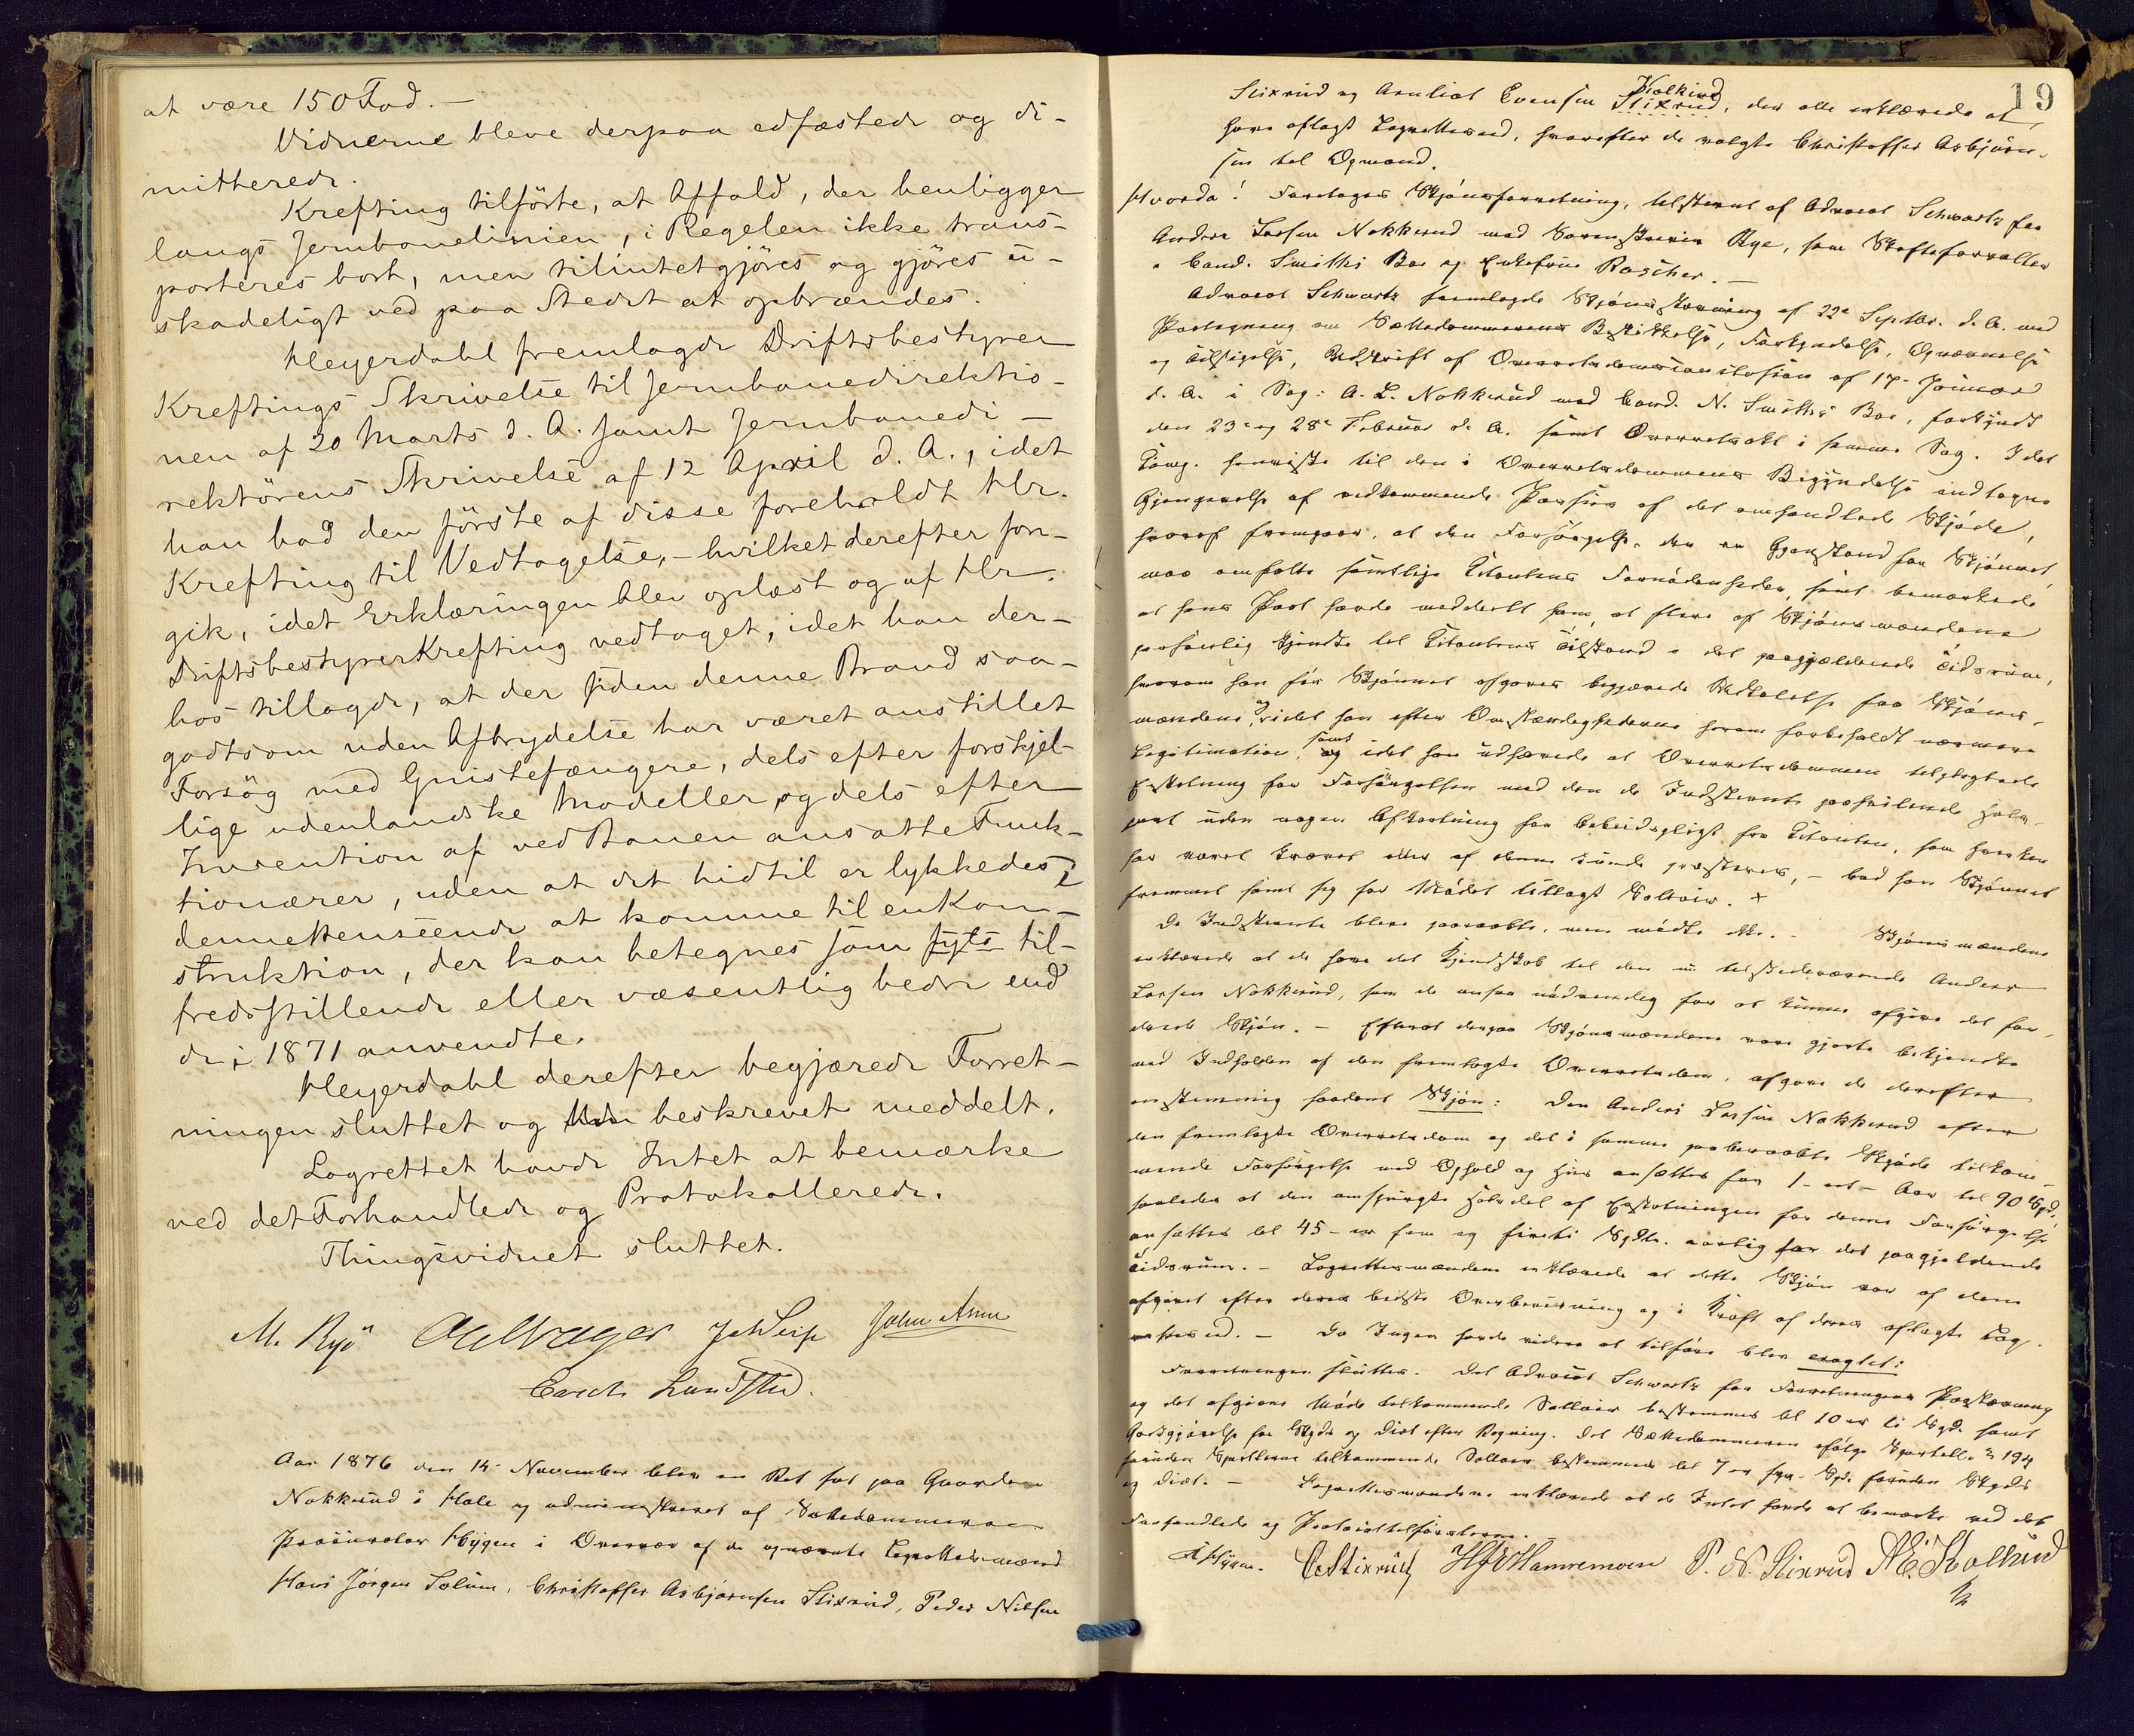 at være 150 Fod. —
Vidnerne bleve derpaa edfæstede og di-
mitterede.
Krefting tilførte, at Affald, der henligger
langs Jernbanelinien, i Regelen ikke trans-
porteres bort, men tilintetgjöres og gjöres u-
skadeligt ved paa Stedet at opbrændes.
Heyerdahl fremlagde Driftsbestyrer
Kreftings Skrivelse til Jernbanedirektio-
nen af 20 Marts d. A. samt Jernbanedi-
rektörens Skrivelse af 12 April d. A., idet
han bad den förste af disse foreholdt Hr.
Krefting til Vedtagelse, - hvilket derefter for-
gik, idet Erklæringen blev oplæst og af Hr.
Driftsbestyrer Krefting vedtaget, idet han der-
hos tillagde, at der siden denne Brand saa-
godtsom uden Afbrydelse har været anstillet
Forsög med Gnistefængere, dels efter forskjel-
lige udenlandske Modeller og dels efter
Invention af ved Banen ansatte Funk-
tionærer, uden at det hidtil er lykkedes i
denne Henseende at komme til en Kon-
struktion, der kan betegnes som fylds til-
fredsstillende eller væsentlig bedre end
de i 1871 anvendte.
Heyerdahl derefter begjærede Forret-
ningen sluttet og beskrevet meddelt.
Lagrettet havde Intet at bemærke
ved det Forhandlede og Protokollerede.
Thingsvidnet sluttet.
M. Rye John
Lundsted.
Aar 1876 den 14 November blev en Ret sat paa Gaarden
Nakkerud i Hole og administreret af Sættedommeren
Prokurator Hygen i Overvær af de opnævnte Lagrettesmænd
Hans Jörgen Solum, Christoffer Asbjørnsen Stixrud, Peder Nilsen
19
Stixrud og Evensen Stixrud, der alle erklærede at
have aflagt Lagrettesed, hvorefter de valgte Christoffer Asbjörn-
sen til Opmand.
Hvorda! Foretoges Skjönsforretning, tilstevnt af Advocat Schwartz for
Anders Larsen Nakkerud mod Sorenskriver Rye, som Skifteforvalter
i Cand. Smiths Bo og Enkefrue Roscher. —
Advocat Schwartz fremlagde Skjönsstevning af 22de Septbr. d. A. med
Paategning om Sættedommerens Beskikkelse, Forkyndelse, Opnævnelse
og Tilsigelse, Udskrift af af 17. Januar
d. A. i Sag: A. L. Nakkerud mod Cand. N. Smiths Bo, forkyndt
den 23de og 28de Februar d. A. samt Overretsakt i samme Sag. Idet
Comp. henviste til den i Overretsdommens Begyndelse indtagne
Gjengivelse af vedkommende Passus af det omhandlede Skjöde,
hvoraf fremgaar, at den Forsörgelse, der er Gjenstand for Skjönnet,
maa omfatte samtlige Citantens Fornödenheder, samt bemærkede
at hans Part havde meddelt ham, at flere af Skjönsmændene
personlig kjendte til Citantens Tilstand i det paagjældende Tidsrum,
hvorom han för Skjönnet afgaves begjærede Udtalelse fra Skjöns-
mændene, og idet han efter Omstændighederne herom forbeholdt nærmere
Legitimation, samt idet han udhævede at Overretsdommen
Erstatning for Forsörgelsen med den de Indstevnte paahvilende Halv-
part uden nogen Afkortning for Arbeidspligt fra Citanten, som hverken
har været krævet eller af denne kunde præsteres, - bad han Skjönnet
fremmet samt sig for Mödet tillagt Salair. +
De Indstevnte bleve paaraabte, men mödte ikke. - Skjönsmændene
erklærede at de have det Kjendskab til den nu tilstedeværende Anders
Larsen Nakkerud, som de ansaa nödvendig for at kunne afgive det for-
Skjön. - Efterat derpaa Skjönsmændene vare gjorte bekjendte
med Indholdet af den fremlagte Overretsdom, afgave de derefter
enstemmig saadant Skjön: Den Anders Larsen Nakkerud efter
den fremlagte Overretsdom og det i samme paaberaabte Skjöde tilkom-
mende Forsörgelse med Ophold og Huus ansættes for 1 - et - Aar til 90 Spd.,
saaledes at den omspurgte Halvdel af Erstatningen for denne Forsörgelse
ansættes til 45 - er fem og firti Spdlr. aarlig for det paagjældende
Tidsrum. - Lagrettesmændene erklærede at dette Skjön var af dem
afgivet efter deres bedste Overbeviisning og i Kraft af deres aflagte Lag-
rettesed. - Da Ingen havde videre at tilföre blev eragtet:
Forretningen sluttes. Det Advocat Schwartz for Forretningens
og det afgivne Möde tilkommende Sallair bestemmes til 10 er ti Spd. samt
Godtgjörelse for Skyds og Diæt efter Regning. Det Sættedommeren ifölge Sportell. § 194
foruden Sportlerne tilkommende Sallair bestemmes til 7 er syv Spd. foruden Skyds
og Diæt. - Lagrettesmændene erklærede at de Intet havde at bemærke ved det
Forhandlede og Protocoltilförslerne.
Hygen. C. Stixrud P. N. Stixrud